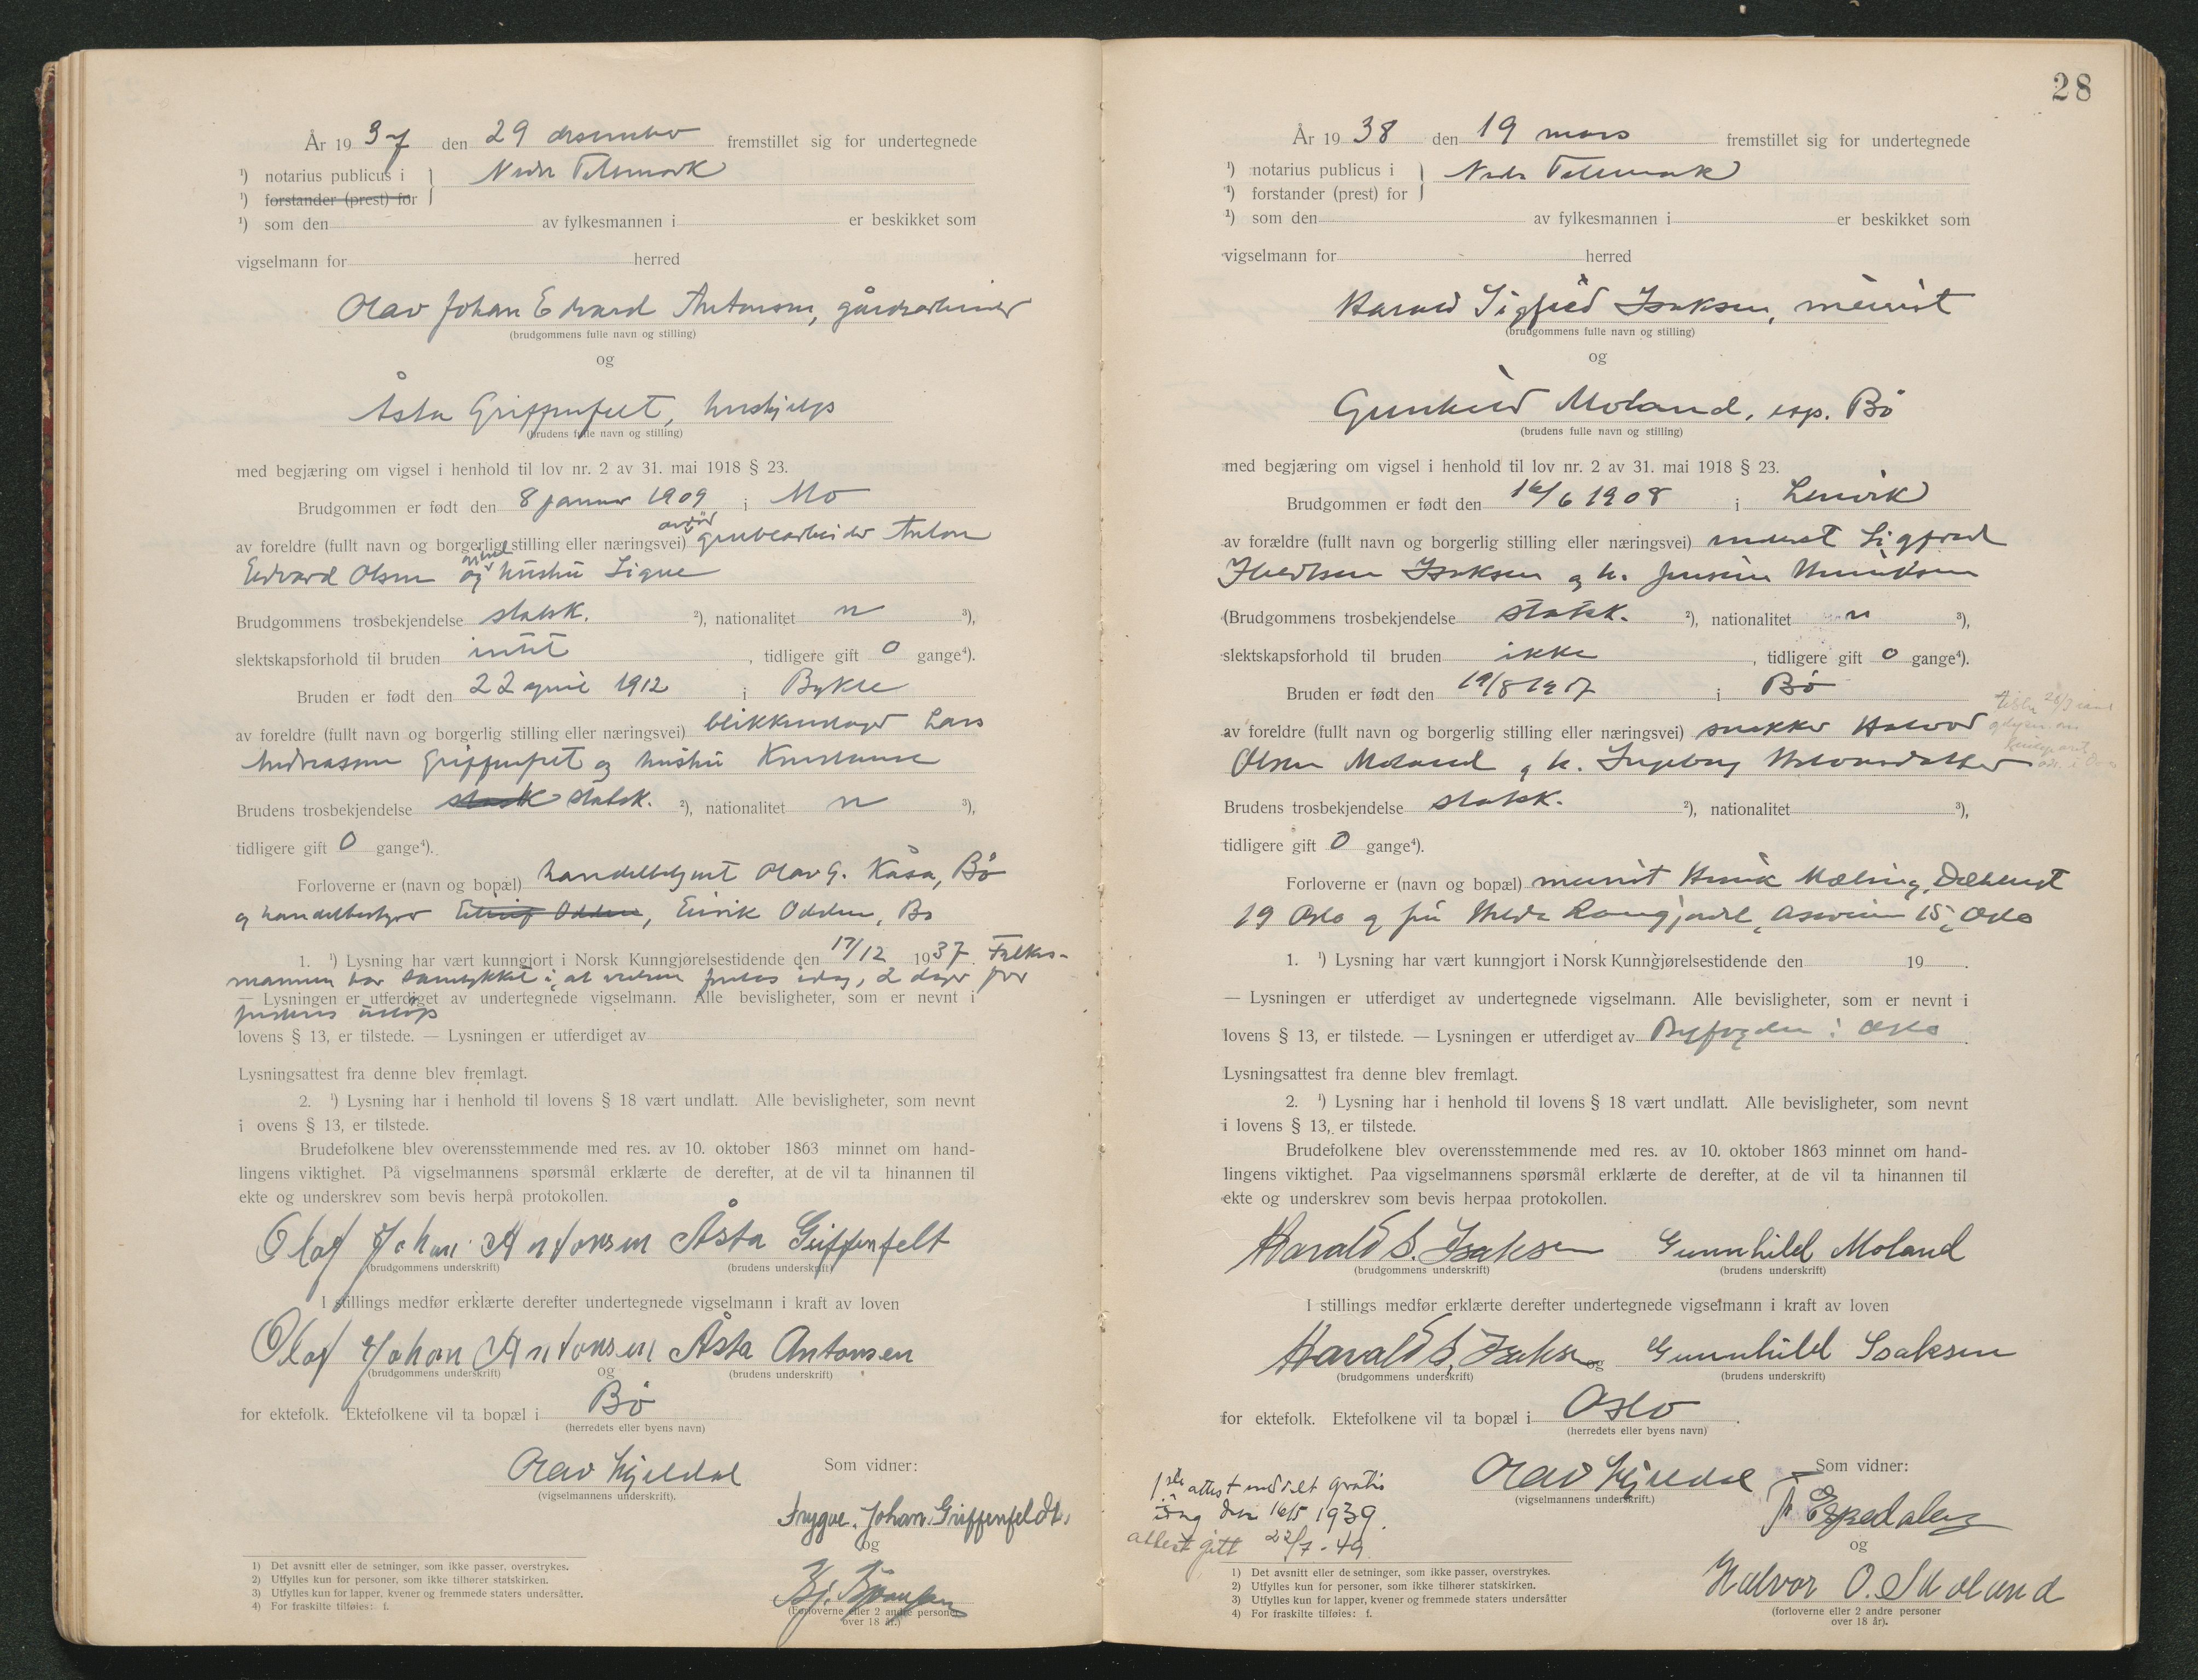 År 19 37 den 29 desember fremstillet sig for undertegnede
¹) notarius publicus i Nedre Telemark
¹) forstander (prest) for
¹) som den av fylkesmannen i er beskikket som
vigselmann for herred
Olav Johan Edvard Antonsen, gårdsarbeider
(brudgommens fulle navn og stilling)
og
Åsta Griffenfelt, hushjelp
(brudens fulle navn og stilling)
med begjæring om vigsel i henhold til lov nr. 2 av 31. mai 1918 § 23.
Brudgommen er født den 8 januar 1909 i Mo
avdød
av foreldre (fullt navn og borgerlig stilling eller næringsvei) grubearbeider Anton
Edvard Olsen og hustru Signe
Brudgommens trosbekjendelse statsk. ²), nationalitet n ³),
slektskapsforhold til bruden intet , tidligere gift 0 gange⁴).
Bruden er født den 22 april 1912 i Bykle
av foreldre (fullt navn og borgerlig stilling eller næringsvei) blikkenslager Lars
Andreassen Griffenfelt og hustru
Brudens trosbekjendelse statsk. ²), nationalitet n ³),
tidligere gift 0 gange⁴).
Forloverne er (navn og bopæl) handelsbetjent Olav G. Kåsa, Bø
og handelsbestyrer Odden, Eivik Odden, Bø
1. ¹) Lysning har vært kunngjort i Norsk Kunngjørelsestidende den 17/12 1937. Fylkes-
mannen har samtykket i at vielsen foretas idag, 2 dager før
— Lysningen er utferdiget av undertegnede vigselmann. Alle bevisligheter, som er nevnt i
fristens utløp
lovens § 13, er tilstede. — Lysningen er utferdiget av
Lysningsattest fra denne blev fremlagt.
2. ¹) Lysning har i henhold til lovens § 18 vært undlatt. Alle bevisligheter, som nevnt
i ovens § 13, er tilstede.
Brudefolkene blev overensstemmende med res. av 10. oktober 1863 minnet om hand-
lingens viktighet. På vigselmannens spørsmål erklærte de derefter, at de vil ta hinannen til
ekte og underskrev som bevis herpå protokollen.
Olaf Johan Antonsen Åsta Griffenfelt
(brudgommens underskrift) (brudens underskrift)
I stillings medfør erklærte derefter undertegnede vigselmann i kraft av loven
Olaf Johan Antonsen Åsta Antonsen
(brudgommens underskrift) og (brudens underskrift)
for ektefolk. Ektefolkene vil ta bopæl i Bø
(herredets eller byens navn)
Olav Kjeldal Som vidner:
(vigselmannens underskrift).
Trygve. Johan. Griffenfeldt.
og
(Forloverne eller 2 andre personer
over 18 år.)
1) Det avsnitt eller de setninger, som ikke passer, overstrykes.
2) Utfylles kun for personer, som ikke tilhører statskirken.
3) Utfylles kun for lapper, kvener og fremmede staters undersåtter.
4) For fraskilte tilføies: f.
28
År 19 38 den 19 mars fremstillet sig for undertegnede
¹) notarius publicus i Nedre Telemark
¹) forstander (prest) for
¹) som den av fylkesmannen i er beskikket som
vigselmann for herred
Harald Sigfred Isaksen, maskinist
(brudgommens fulle navn og stilling)
og
Gunhild Moland, eksp. Bø
(brudens fulle navn og stilling)
med begjæring om vigsel i henhold til lov nr. 2 av 31. mai 1918 § 23.
Brudgommen er født den 16/6 1908 i Lenvik
av forældre (fullt navn og borgerlig stilling eller næringsvei) Sigfred
Isaksen og h. Jensine
(Brudgommens trosbekjendelse statsk. ²), nationalitet n ³),
slektskapsforhold til bruden ikke , tidligere gift 0 gange⁴).
Bruden er født den 19/8 1907 i Bø
av foreldre (fullt navn og borgerlig stilling eller næringsvei) snekker Halvor
Olsen Moland og h. Ingeborg Halvorsdatter
Brudens trosbekjendelse statsk. ²), nationalitet ³),
tidligere gift 0 gange⁴).
Forloverne er (navn og bopæl) Henrik Mæling,
19 Oslo og fru 15, Oslo
1. ¹) Lysning har vært kunngjort i Norsk Kunngjørelsestidende den 19 .
— Lysningen er utferdiget av undertegnede vigselmann. Alle bevisligheter, som er nevnt i
lovens § 13, er tilstede. — Lysningen er utferdiget av Byfogden i Oslo
Lysningsattest fra denne blev fremlagt.
2. ¹) Lysning har i henhold til lovens § 18 vært undlatt. Alle bevisligheter, som nevnt
i lovens § 13, er tilstede.
Brudefolkene blev overensstemmende med res. av 10. oktober 1863 minnet om hand-
lingens viktighet. Paa vigselmannens spørsmål erklærte de derefter, at de vil ta hinannen til
ekte og underskrev som bevis herpaa protokollen.
Harald S. Isaksen Gunnhild Moland
(brudgommens underskrift) (brudens underskrift)
I stillings medfør erklærte derefter undertegnede vigselmann i kraft av loven
Harald S. Isaksen og Gunnhild Isaksen
(brudgommens underskrift) (brudens underskrift)
for ektefolk. Ektefolkene vil ta bopæl i Oslo .
(herredets eller byens navn)
Olav Kjeldal Som vidner:
(vigselmannens underskrift.)
attest meddelt gratis
idag den 16/5 1939.
attest gitt 22/7-49
T. Espedalen
og
Halvor O. Moland
(forloverne eller 2 andre personer
over 18 år).
1) Det avsnitt eller de setninger, som ikke passer, overstrykes.
2) Utfylles kun for personer, som ikke tilhører statskirken.
3) Utfylles kun for lapper, kvener og fremmede staters undersåtter
4) For fraskilte tilføies: f.